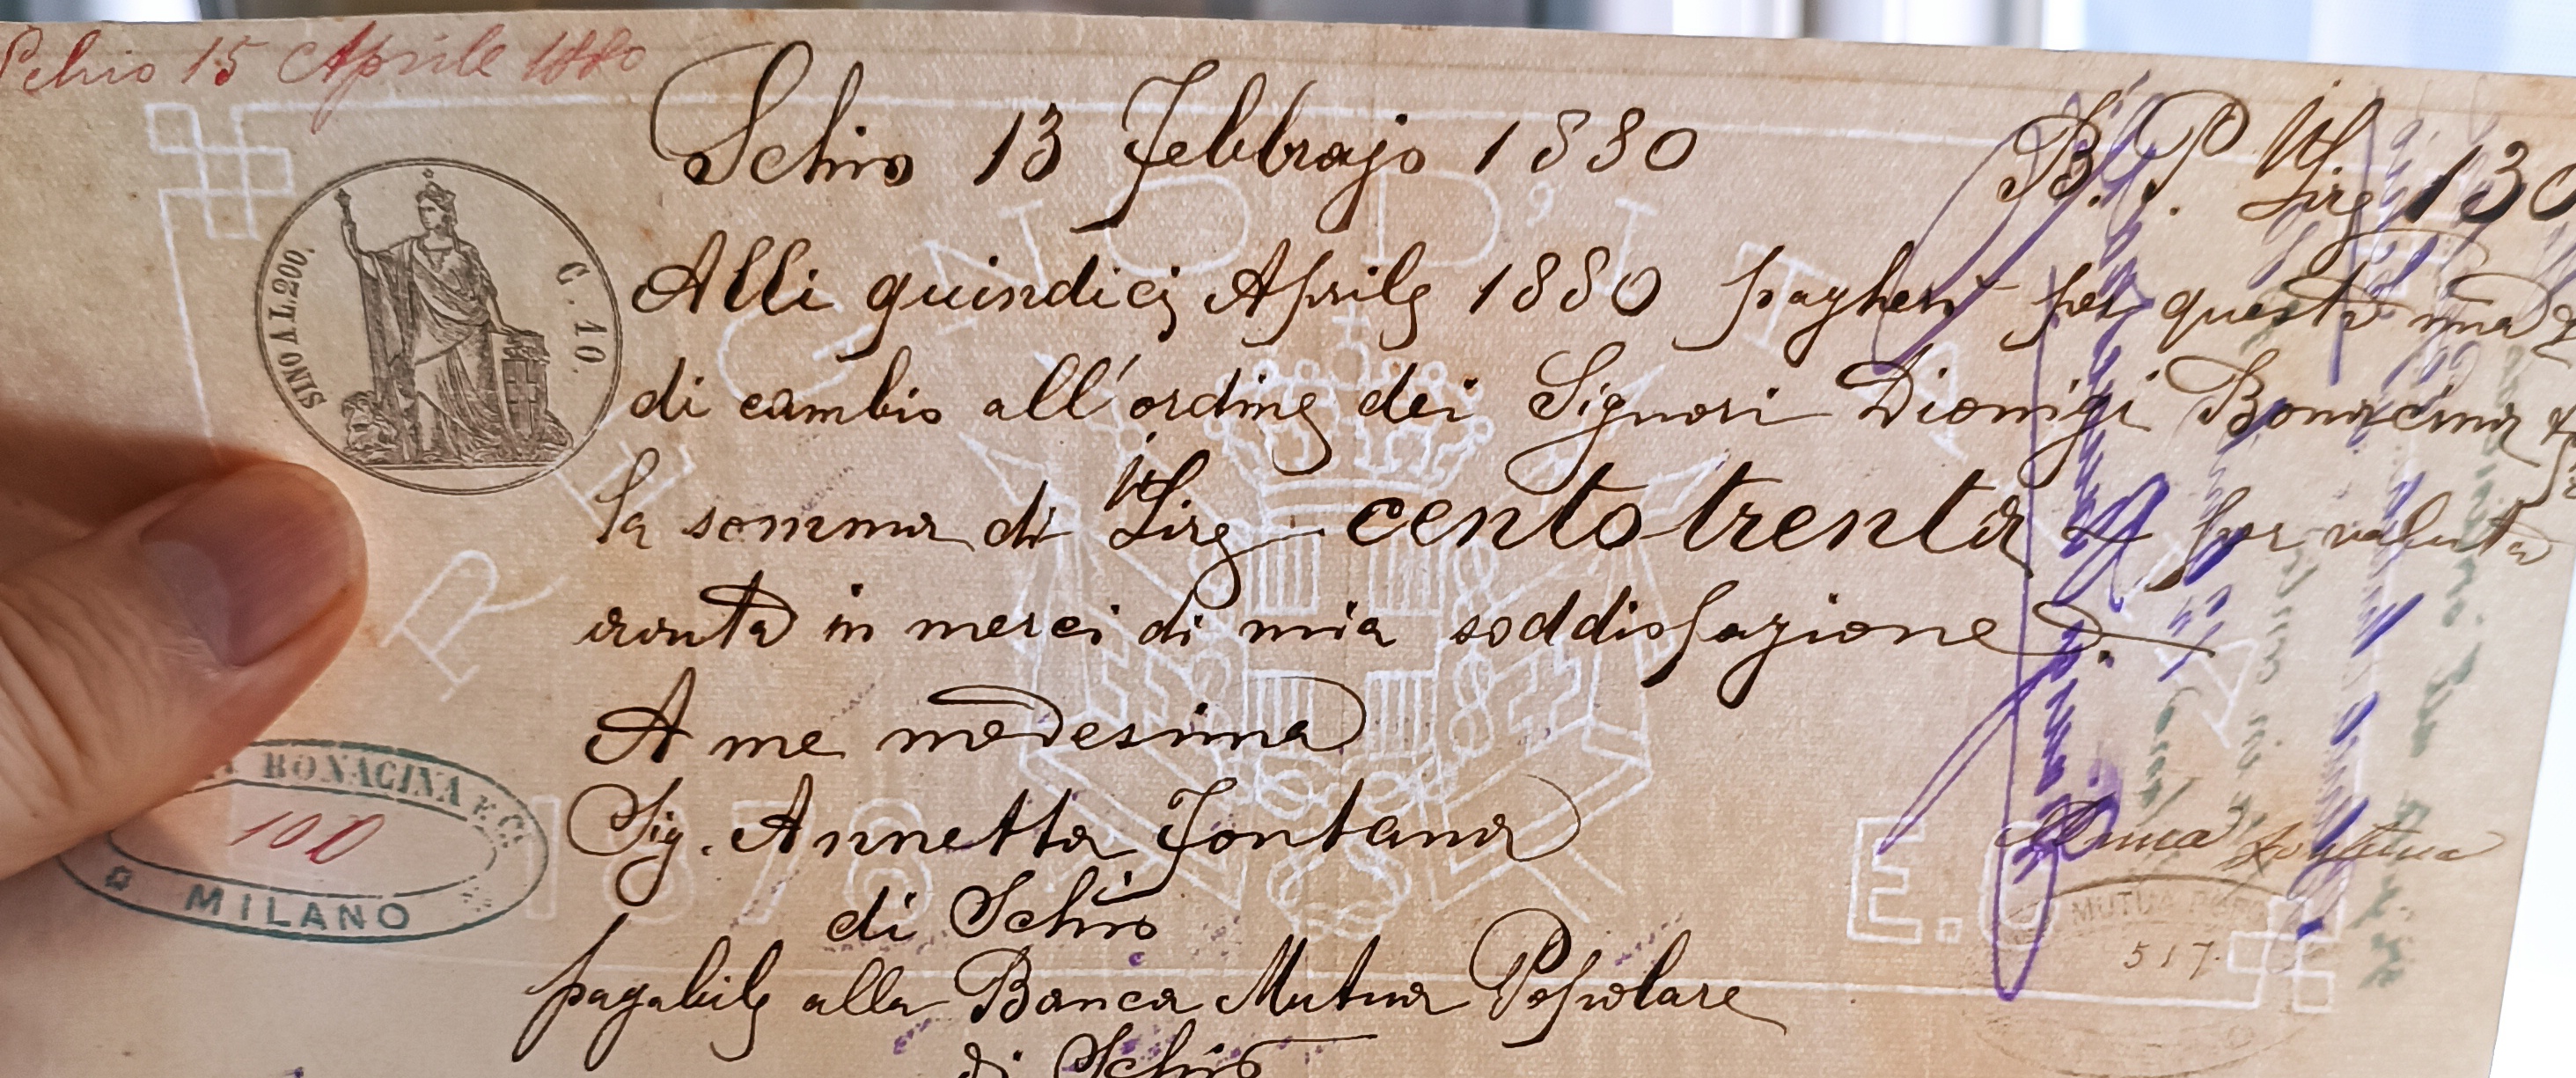 Schio 15 Aprile 1880
Schio 13 Febbrajo 1880
B. P. Lire 130
SINO A L. 200.
C. 10.
REGNO D'ITALIA
Alli quindici Aprile 1880 pagherò per questa mia
di cambio all'ordine dei Signori Dionigi Bonacina
la somma di Lire centotrenta per valuta
avuta in merci di mia soddisfazione.
A me medesima
Sig. Annetta Fontana
di Schio
pagabile alla Banca Mutua Popolare
di Schio
BONACINA E C.
100
MILANO
1878
Anna Fontana
MUTUA POPO
517